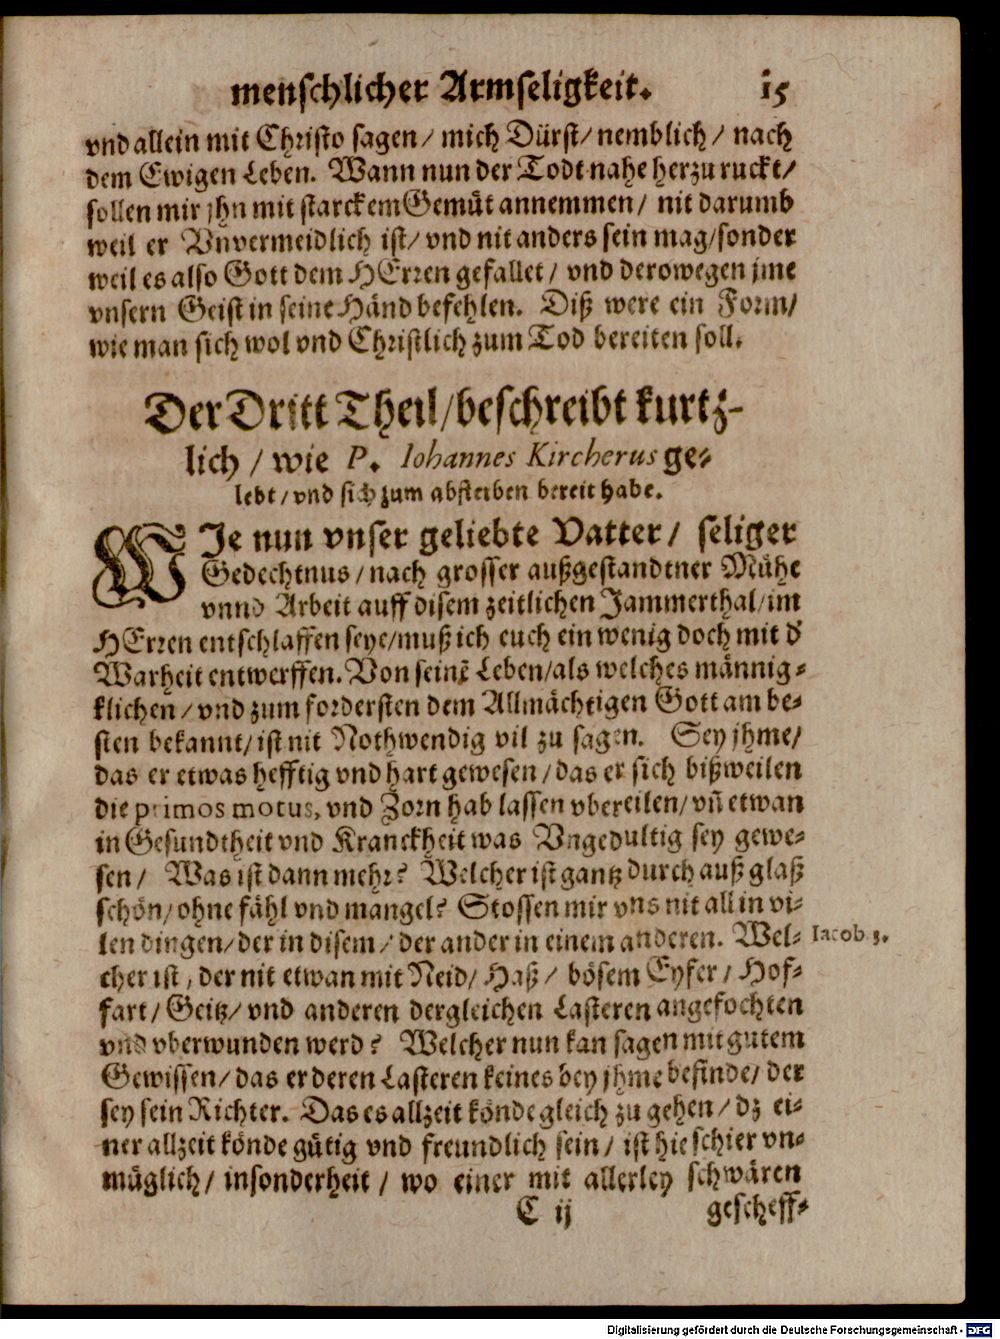 menschlicher Armseligkeit. 15
vnd allein mit Christo sagen/ mich Dürst/ nemblich/ nach
dem Ewigen Leben. Wann nun der Todt nahe herzu ruckt/
sollen mir jhn mit starckem Gemüt annemmen/ nit darumb
weil er Vnvermeidlich ist/ vnd nit anders sein mag/ sonder
weil es also Gott dem HErren gefallet/ vnd derowegen jme
vnsern Geist in seine Händ befehlen. Diß were ein Form/
wie man sich wol vnd Christlich zum Tod bereiten soll.
Der Dritt Theil/ beschreibt kurtz-
lich/ wie P. Iohannes Kircherus ge-
lebt/ vnd sich zum absterben bereit habe.
WJe nun vnser geliebte Vatter/ seliger
Gedechtnus/ nach grosser außgestandtner Mühe
vnnd Arbeit auff disem zeitlichen Jammerthal/ im
HErren entschlaffen seye/ muß ich euch ein wenig doch mit d'
Warheit entwerffen. Von seinē Leben/ als welches männig-
klichen/ vnd zum fordersten dem Allmächtigen Gott am be-
sten bekannt/ ist nit Nothwendig vil zu sagen. Sey jhme/
das er etwas hefftig vnd hart gewesen/ das er sich bißweilen
die primos motus, vnd Zorn hab lassen vbereilen/ vñ etwan
in Gesundtheit vnd Kranckheit was Vngedultig sey gewe-
sen/ Was ist dann mehr? Welcher ist gantz durch auß glaß
schön/ ohne fähl vnd mangel? Stossen mir vns nit all in vi-
len dingen/ der in disem/ der ander in einem anderen. Wel- Iacob 3.
cher ist, der nit etwan mit Neid/ Haß/ bösem Eyfer/ Hof-
fart/ Geitz/ vnd anderen dergleichen Lasteren angefochten
vnd vberwunden werd? Welcher nun kan sagen mit gutem
Gewissen/ das er deren Lasteren keines bey jhme befinde/ der
sey sein Richter. Das es allzeit könde gleich zu gehen/ dz ei-
ner allzeit könde gütig vnd freundlich sein/ ist hie schier vn-
müglich/ insonderheit/ wo einer mit allerley schwären
C ij gescheff-
Digitalisierung gefördert durch die Deutsche Forschungsgemeinschaft - DFG